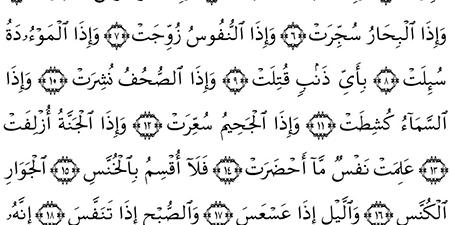 وَإِذَا ٱلْبِحَارُ سُجِّرَتْ ﴿٦﴾ وَإِذَا ٱلنُّفُوسُ زُوِّجَتْ ﴿٧﴾ وَإِذَا ٱلْمَوْءُۥدَةُ
سُئِلَتْ ﴿٨﴾ بِأَىِّ ذَنۢبٍ قُتِلَتْ ﴿٩﴾ وَإِذَا ٱلصُّحُفُ نُشِرَتْ ﴿١٠﴾ وَإِذَا
ٱلسَّمَآءُ كُشِطَتْ ﴿١١﴾ وَإِذَا ٱلْجَحِيمُ سُعِّرَتْ ﴿١٢﴾ وَإِذَا ٱلْجَنَّةُ أُزْلِفَتْ
﴿١٣﴾ عَلِمَتْ نَفْسٌ مَّآ أَحْضَرَتْ ﴿١٤﴾ فَلَآ أُقْسِمُ بِٱلْخُنَّسِ ﴿١٥﴾ ٱلْجَوَارِ
ٱلْكُنَّسِ ﴿١٦﴾ وَٱلَّيْلِ إِذَا عَسْعَسَ ﴿١٧﴾ وَٱلصُّبْحِ إِذَا تَنَفَّسَ ﴿١٨﴾ إِنَّهُۥ